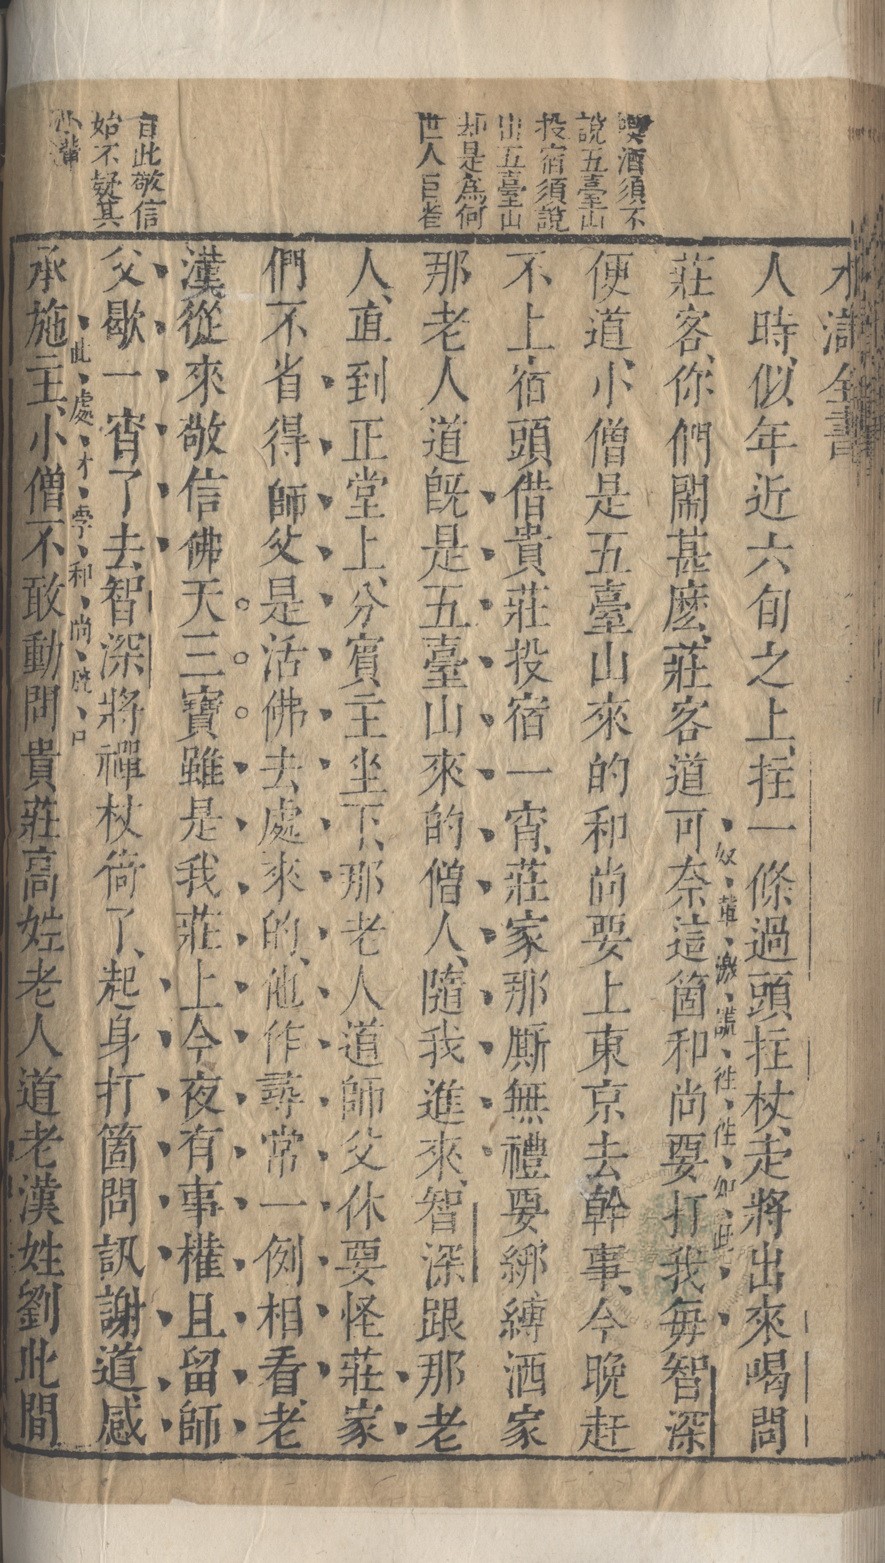 水滸全書
喫酒須不
說五臺山
投宿須說
出五臺山
却是爲何
世人巨雀
人時似年近六旬之上、拄一條過頭拄杖、走將出來喝問
莊客、你們鬧甚麼、莊客道可奈這箇和尚要打我每智深
奴輩激謊往性如此
便道、小僧是五臺山來的和尚要上東京去幹事、今晚赶
不上宿頭、借貴莊投宿一宵、莊家那厮無禮要綁縛洒家
那老人道既是五臺山來的僧人、隨我進來、智深跟那老
人、直到正堂上、分賓主坐下、那老人道師父休要怪莊家
們不省得師父是活佛去處來的、他作尋常一例相看、老
漢從來敬信佛天三寶雖是我莊上今夜有事權且留師
父歇一宵了去、智深將禪杖倚了、起身打箇問訊謝道、感
承施主、小僧不敢動問貴莊高姓老人道老漢姓劉此間
此處才雩和尚脫口
言此敬信
始不疑其
小輩